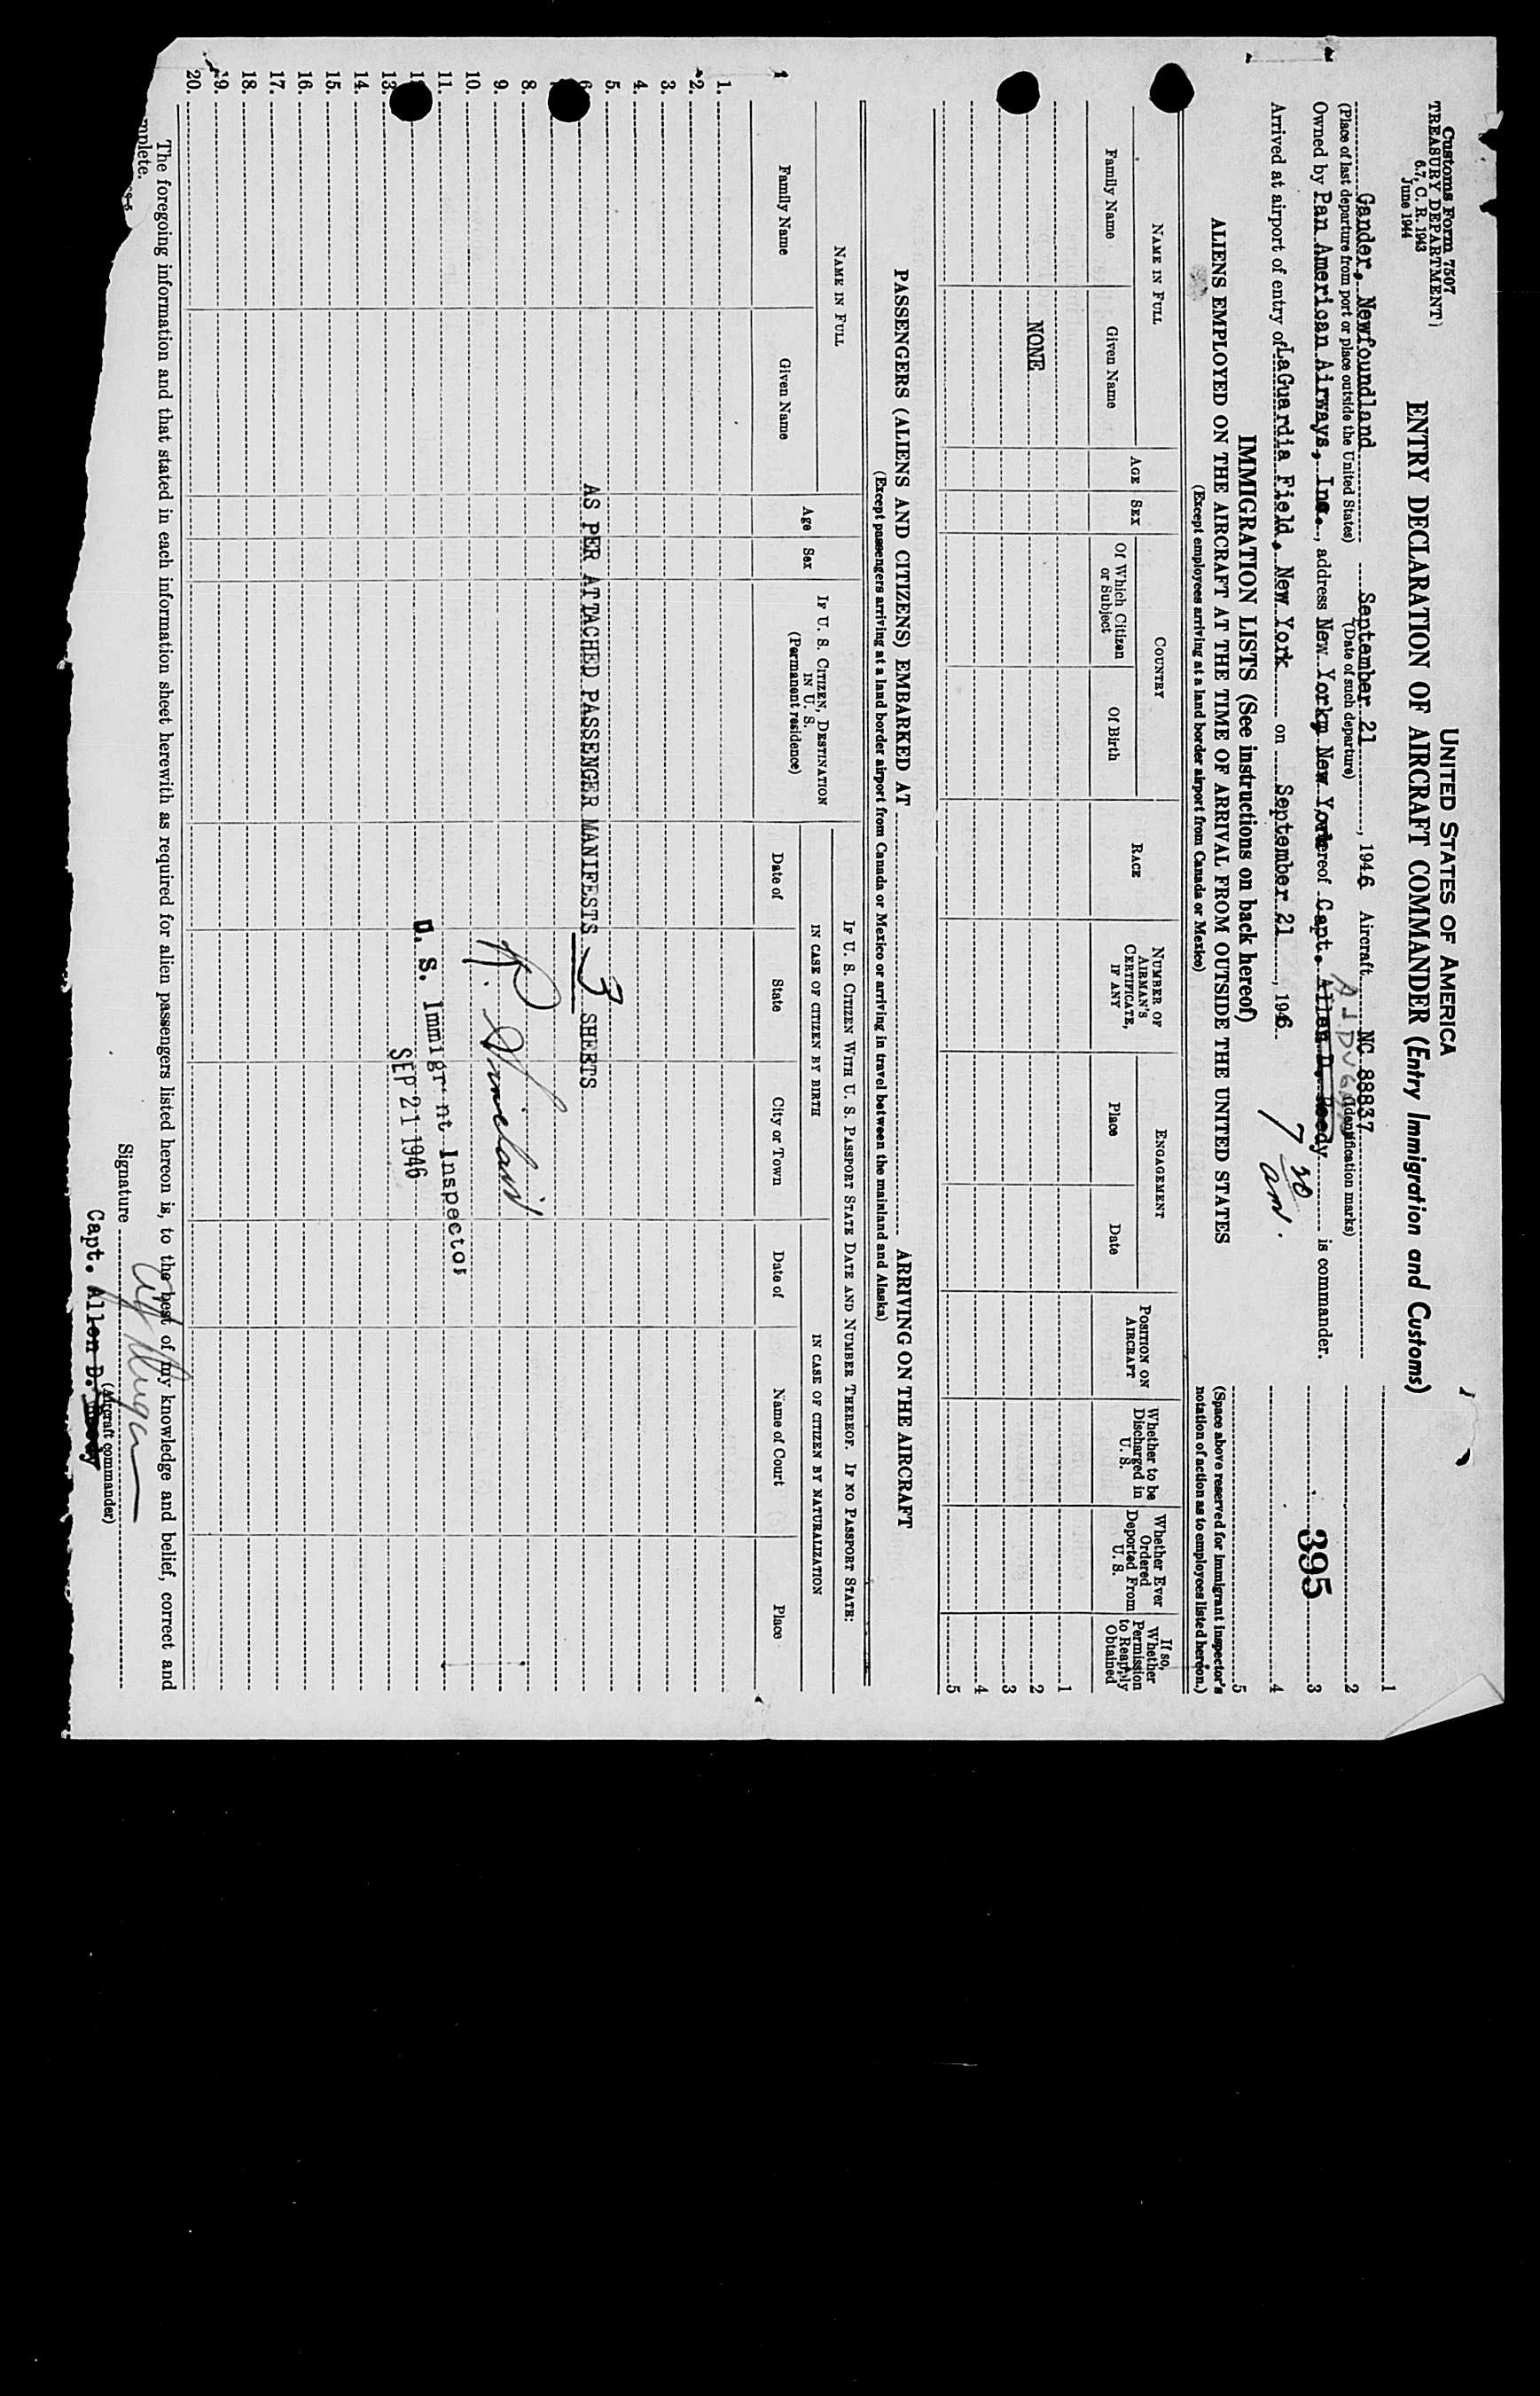 Customs Form 7507
TREASURY DEPARTMENT
6.7, C. R. 1943
June 1944
UNITED STATES OF AMERICA
ENTRY DECLARATION OF AIRCRAFT COMMANDER (Entry Immigration and Customs)
Gander, Newfoundland September 21, 1946 Aircraft NC 88837
(Place of last departure from port or place outside the United States) (Date of such departure) (Identification marks)
Owned by Pan American Airways, Inc., address New York, New York hereof Capt. Allen D. Reedy is commander.
Arrived at airport of entry of LaGuardia Field, New York on September 21, 1946.
7 30 am.
1
2
395
3
4
5
(Space above reserved for immigrant inspector's
notation of action as to employees listed hereon.)
IMMIGRATION LISTS (See instructions on back hereof)
ALIENS EMPLOYED ON THE AIRCRAFT AT THE TIME OF ARRIVAL FROM OUTSIDE THE UNITED STATES
(Except employees arriving at a land border airport from Canada or Mexico)
NAME IN FULL
Family Name Given Name
AGE
SEX
COUNTRY
Of Which Citizen or Subject
Of Birth
RACE
NUMBER OF AIRMAN'S CERTIFICATE, IF ANY
ENGAGEMENT
Place Date
POSITION ON AIRCRAFT
Whether to be Discharged in U. S.
Whether Ever Ordered Deported From U. S.
If so, Whether Permission to Reapply Obtained
1
NONE 2
3
4
5
PASSENGERS (ALIENS AND CITIZENS) EMBARKED AT ARRIVING ON THE AIRCRAFT
(Except passengers arriving at a land border airport from Canada or Mexico or arriving in travel between the mainland and Alaska)
NAME IN FULL
Family Name Given Name
Age
Sex
IF U. S. CITIZEN, DESTINATION IN U. S.
(Permanent residence)
IF U. S. CITIZEN WITH U. S. PASSPORT STATE DATE AND NUMBER THEREOF. IF NO PASSPORT STATE:
IN CASE OF CITIZEN BY BIRTH
Date of State City or Town
IN CASE OF CITIZEN BY NATURALIZATION
Date of Name of Court Place
1.
2.
3.
4.
5.
6. AS PER ATTACHED PASSENGER MANIFESTS 3 SHEETS
8.
9.
10.
11. U. S. Immigrant Inspector
SEP 21 1946
13.
14.
15.
16.
17.
18.
19.
20.
The foregoing information and that stated in each information sheet herewith as required for alien passengers listed hereon is, to the best of my knowledge and belief, correct and
complete.
Signature
(Aircraft commander)
Capt. Allen D. Reedy